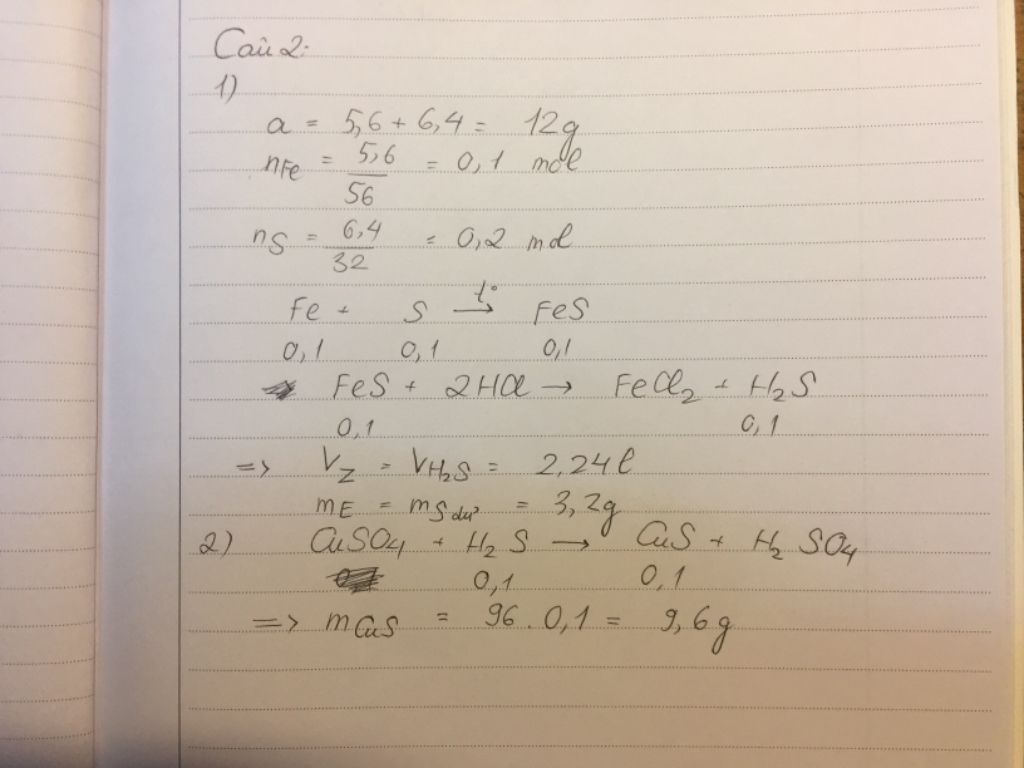 Câu 2:
1)
a = 5,6 + 6,4 = 12g
nFe = 5,6/56 = 0,1 mol
nS = 6,4/32 = 0,2 mol
Fe + S →(t°) FeS
0,1 0,1 0,1
FeS + 2HCl → FeCl₂ + H₂S
0,1 0,1
=> VZ = VH₂S = 2,24l
mE = mS dư = 3,2g
2) CuSO₄ + H₂S → CuS + H₂SO₄
0,1 0,1
=> mCuS = 96 . 0,1 = 9,6g